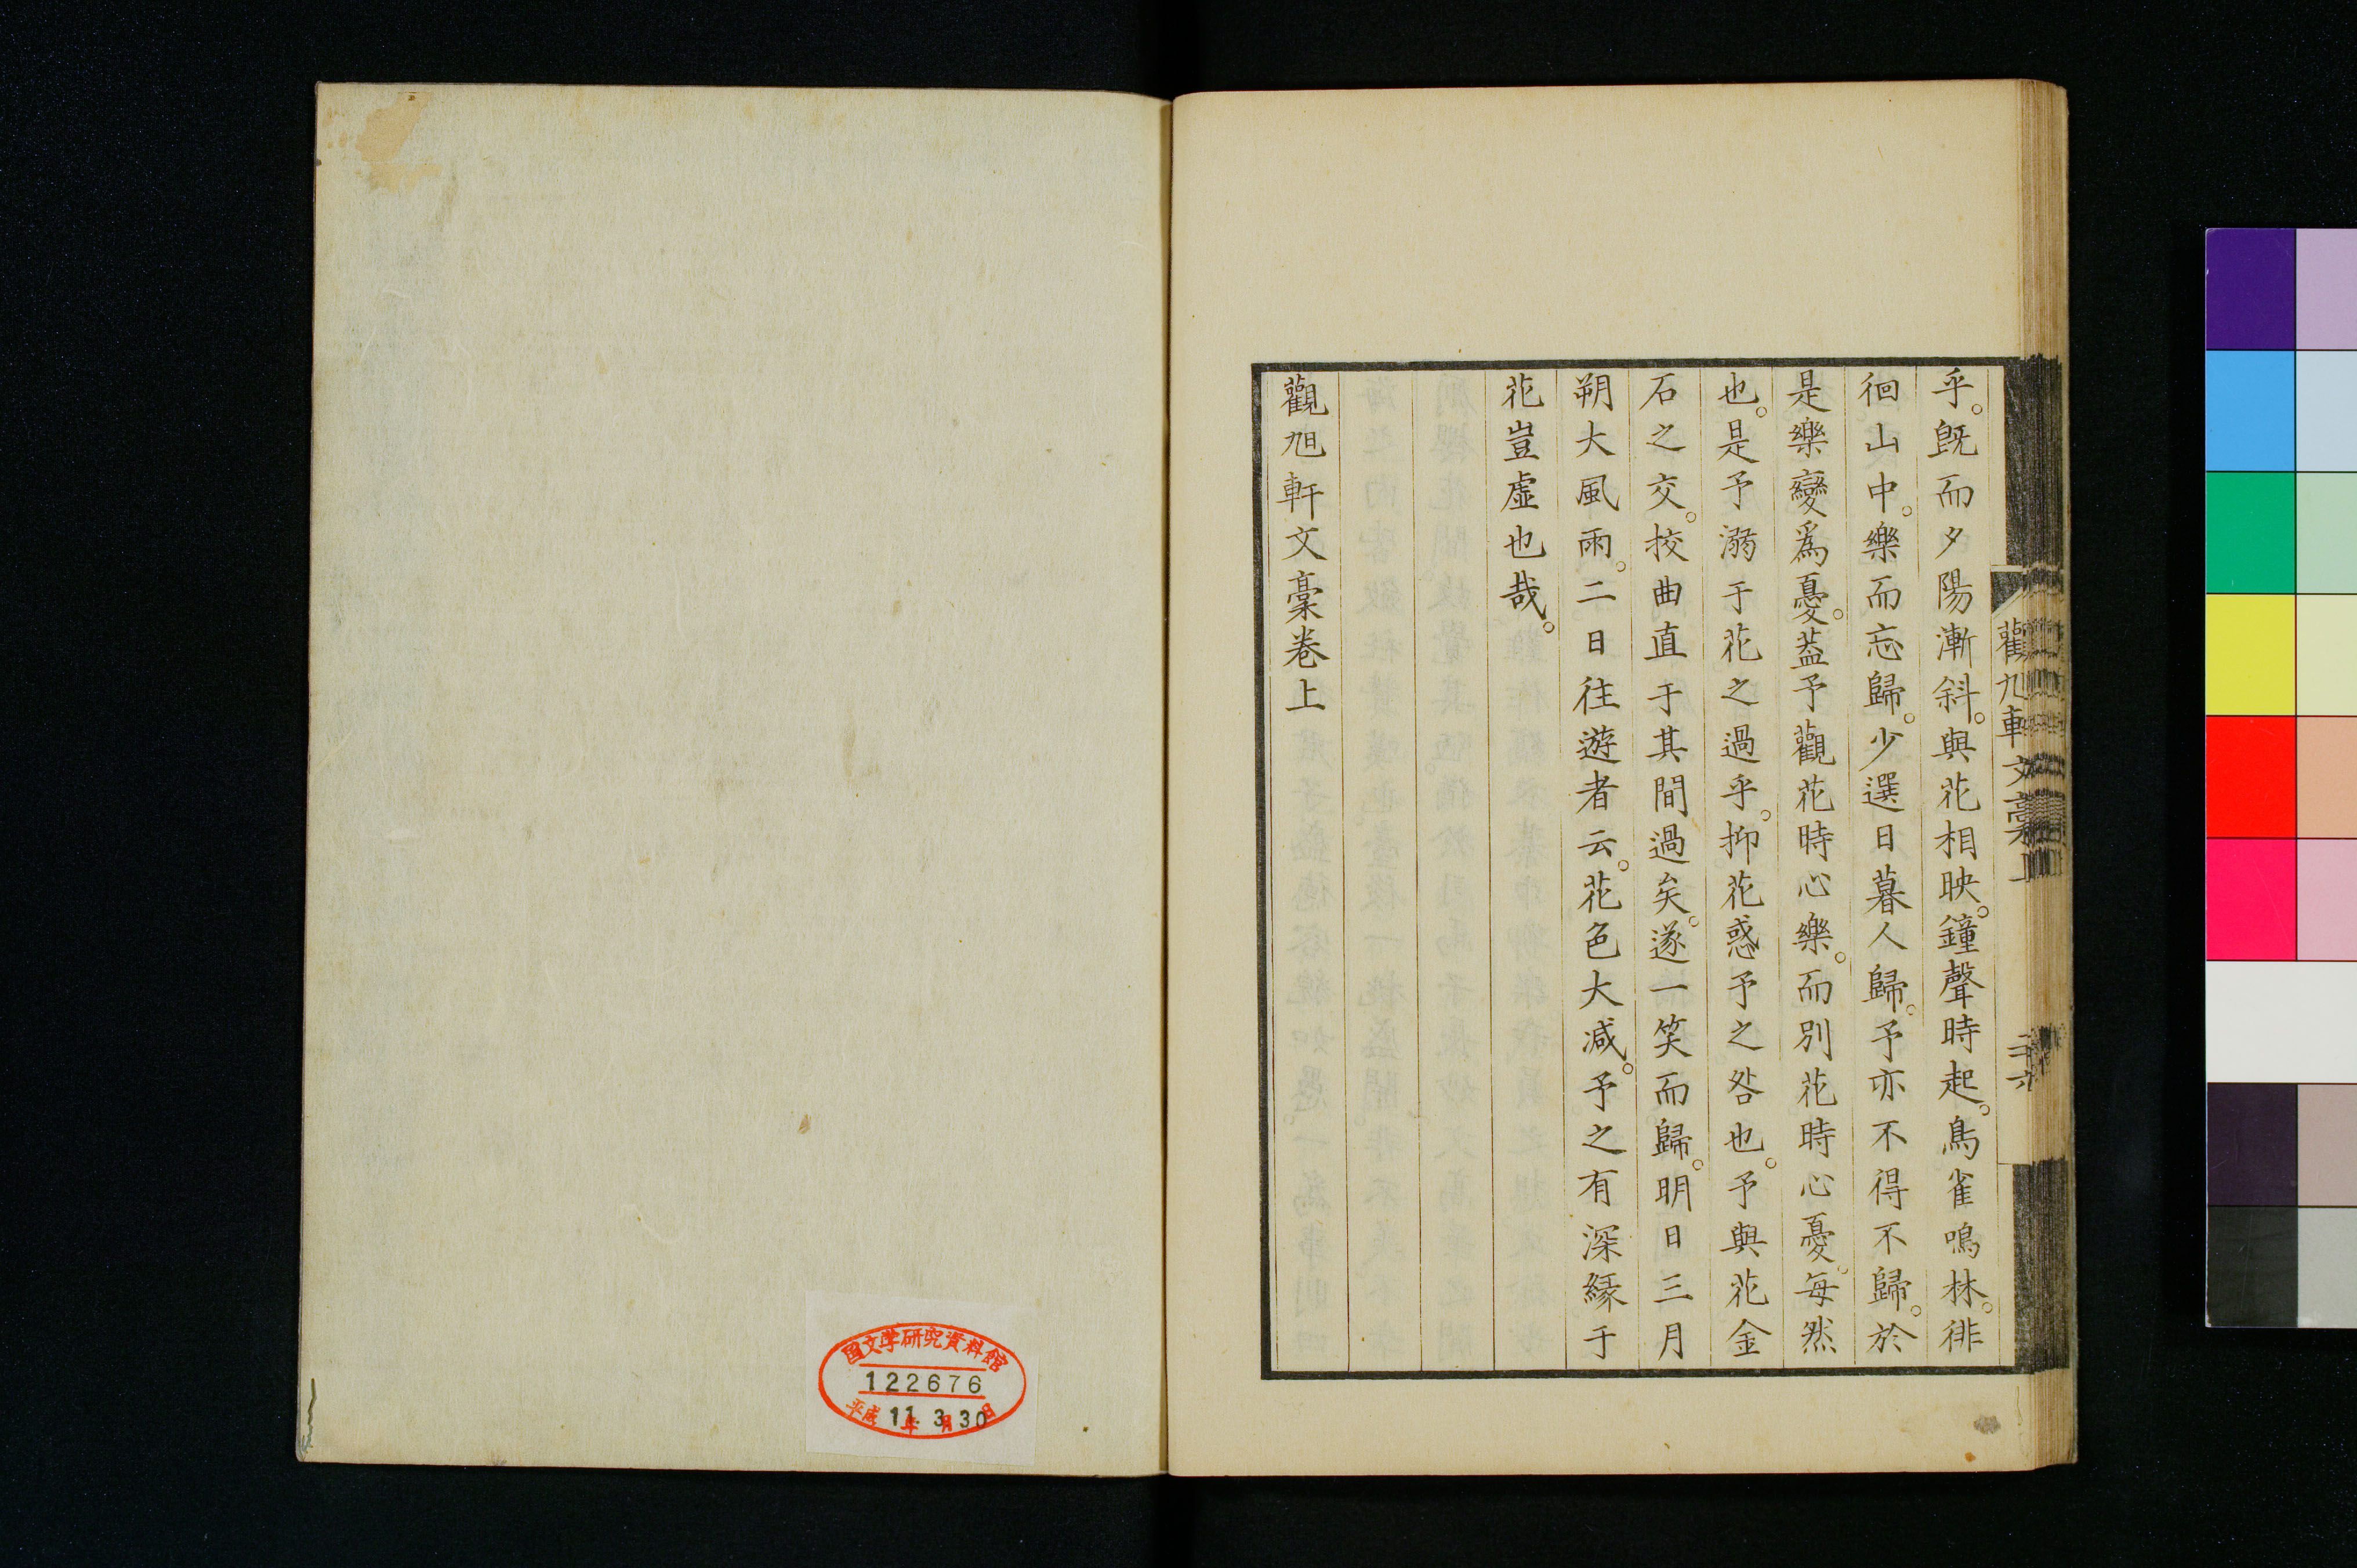 乎。既而夕陽漸斜。與花相映。鐘聲時起。鳥雀鳴林。徘
徊山中。樂而忘歸。少選日暮人歸。予亦不得不歸。於
是樂變爲憂。蓋予觀花時心樂。而別花時心憂。每然
也。是予溺于花之過乎。抑花惑予之咎也。予與花金
石之交。挍曲直于其間過矣。遂一笑而歸。明日三月
朔大風雨。二日往遊者云。花色大減。予之有深縁于
花豈虛也哉。
觀旭軒文稾卷上
國文学研究資料館
122676
平成11年3月30日